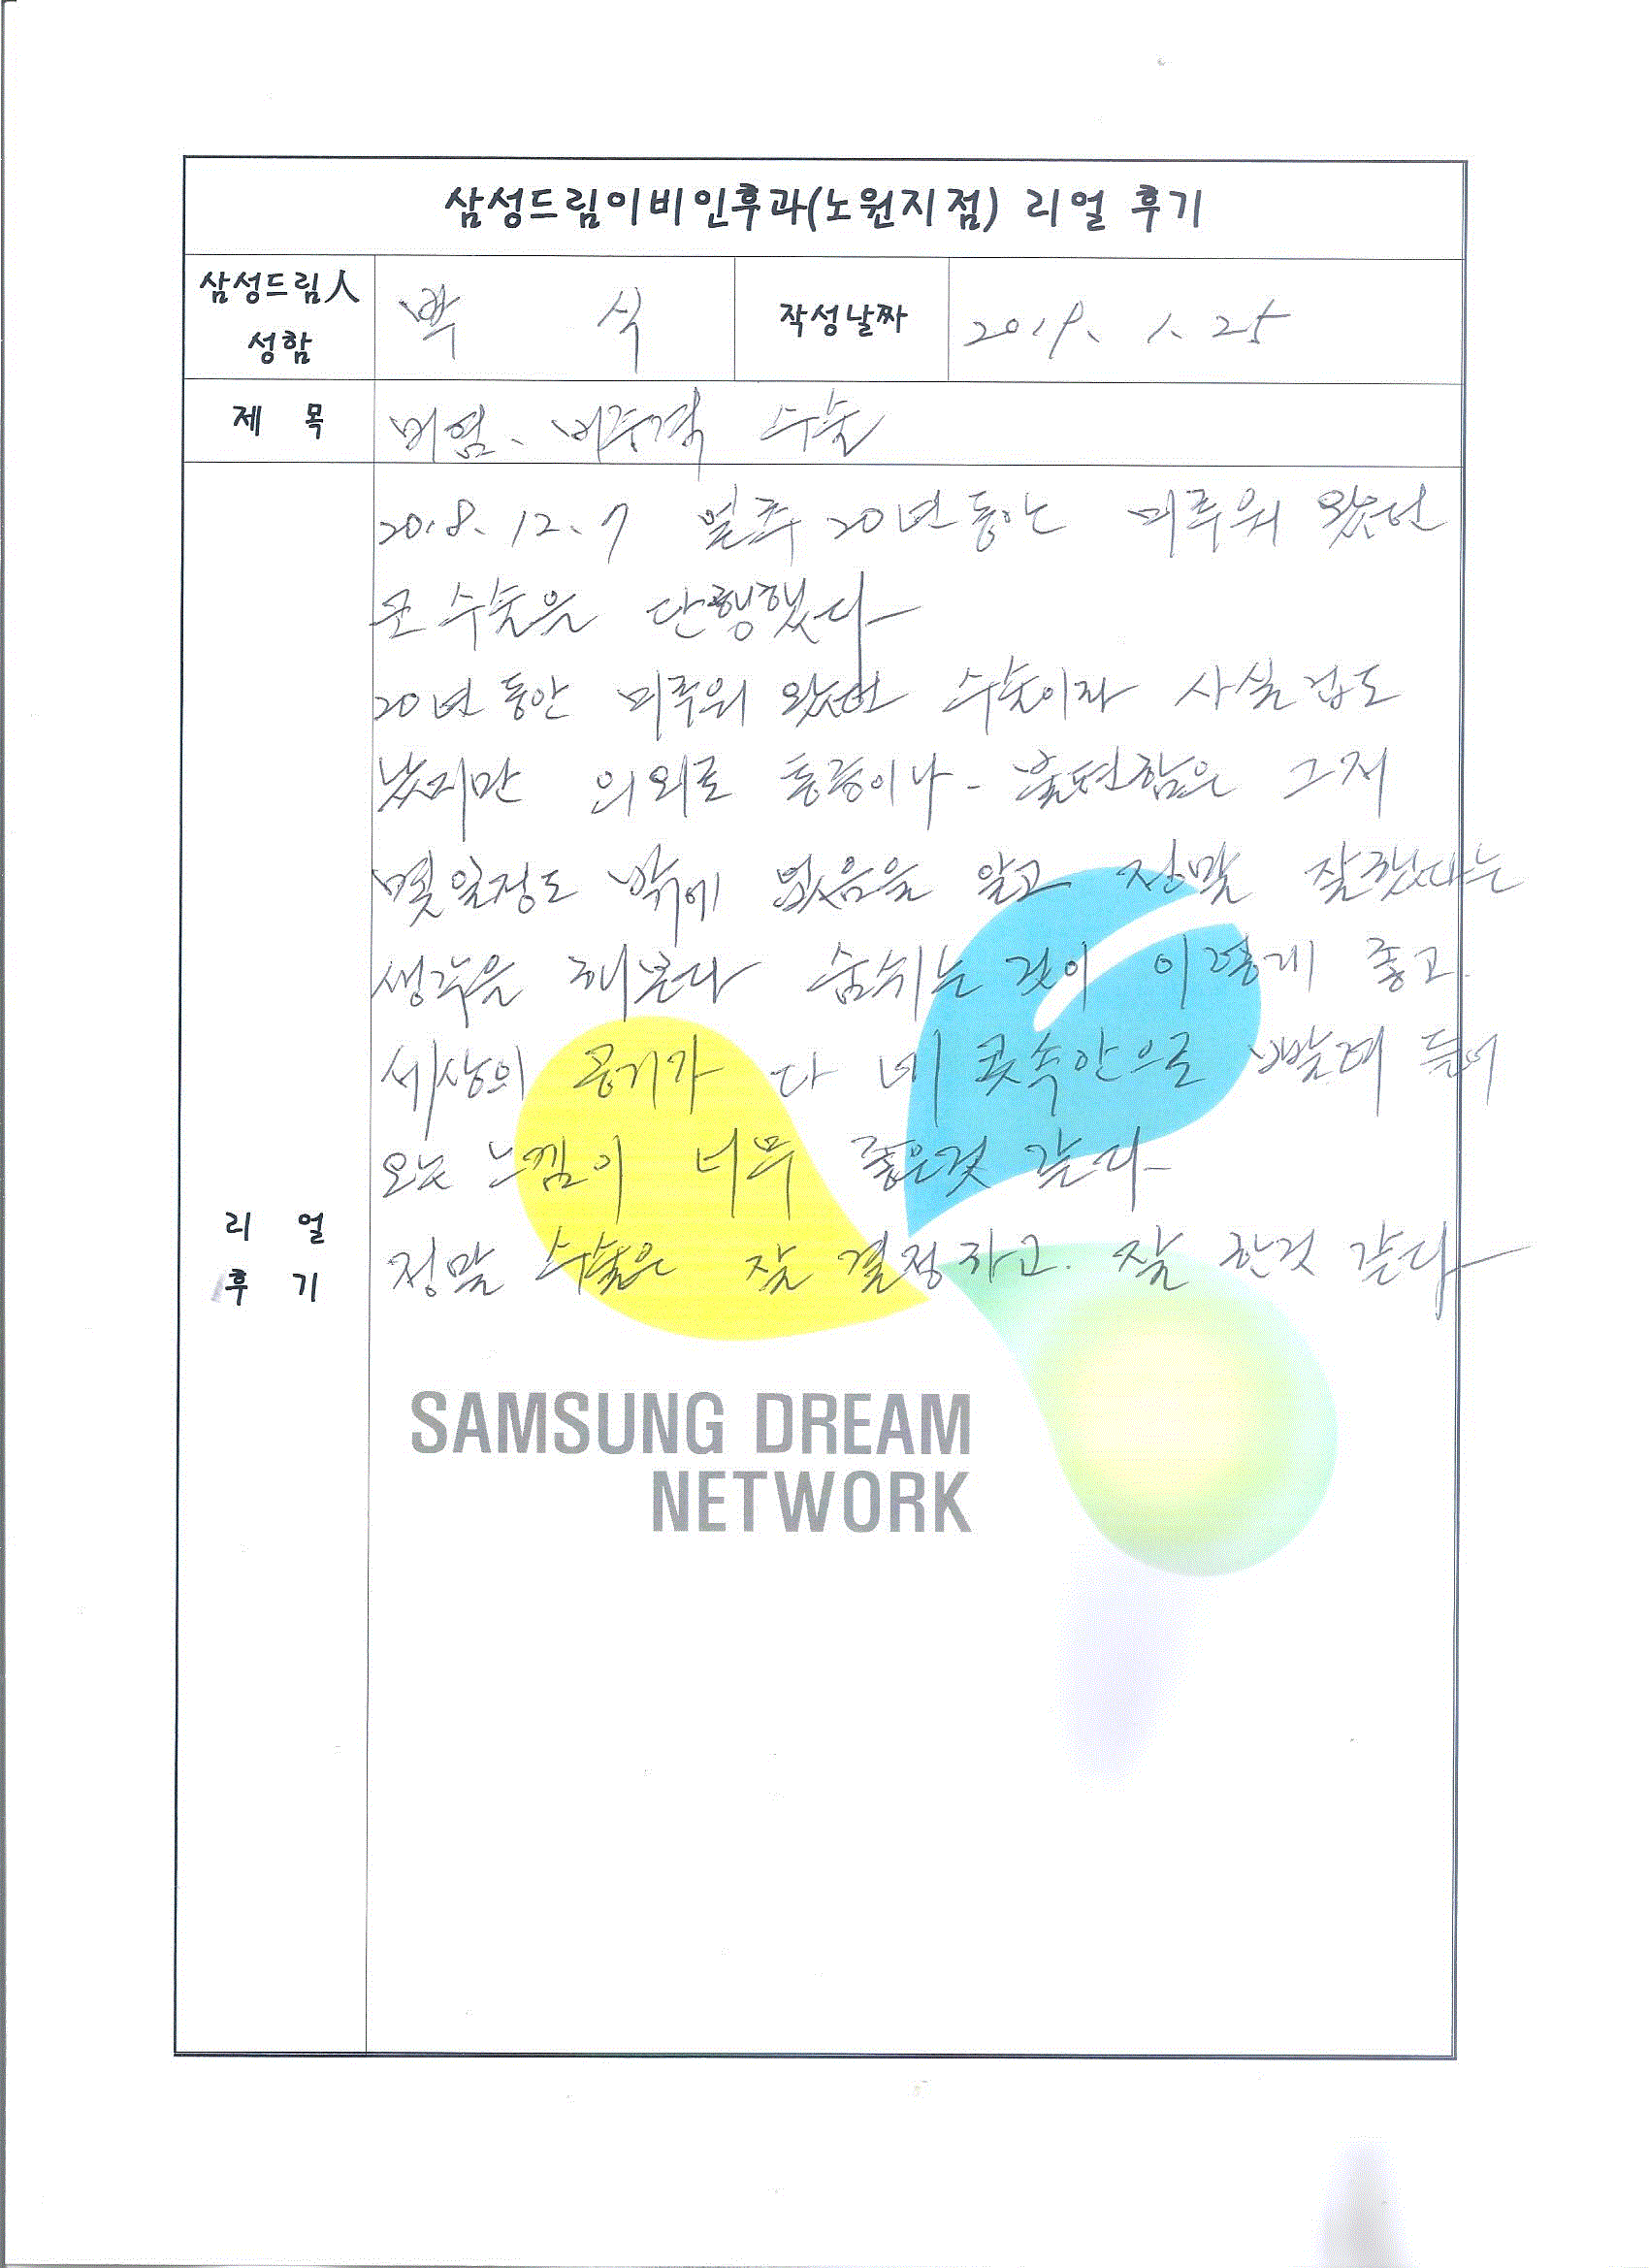 삼성드림이비인후과(노원지점) 리얼 후기
삼성드림人 성함 박 식 작성날짜 2019. 1. 25
제 목 비염、비중격 수술
2018. 12. 7 얼추 20년 동안 미루워 왔던
코 수술을 단행했다
20년 동안 미루워 왔던 수술이라 사실 겁도
났지만 의외로 통증이나 불편함은 그저
몇일정도 밖에 없음을 알고 정말 잘했다는
생각을 해본다 숨쉬는 것이 이렇게 좋고.
세상의 공기가 다 내 콧속안으로 빨려 들어
오는 느낌이 너무 좋은것 같다
정말 수술은 잘 결정하고. 잘 한것 같다
리 얼
후 기
SAMSUNG DREAM
NETWORK